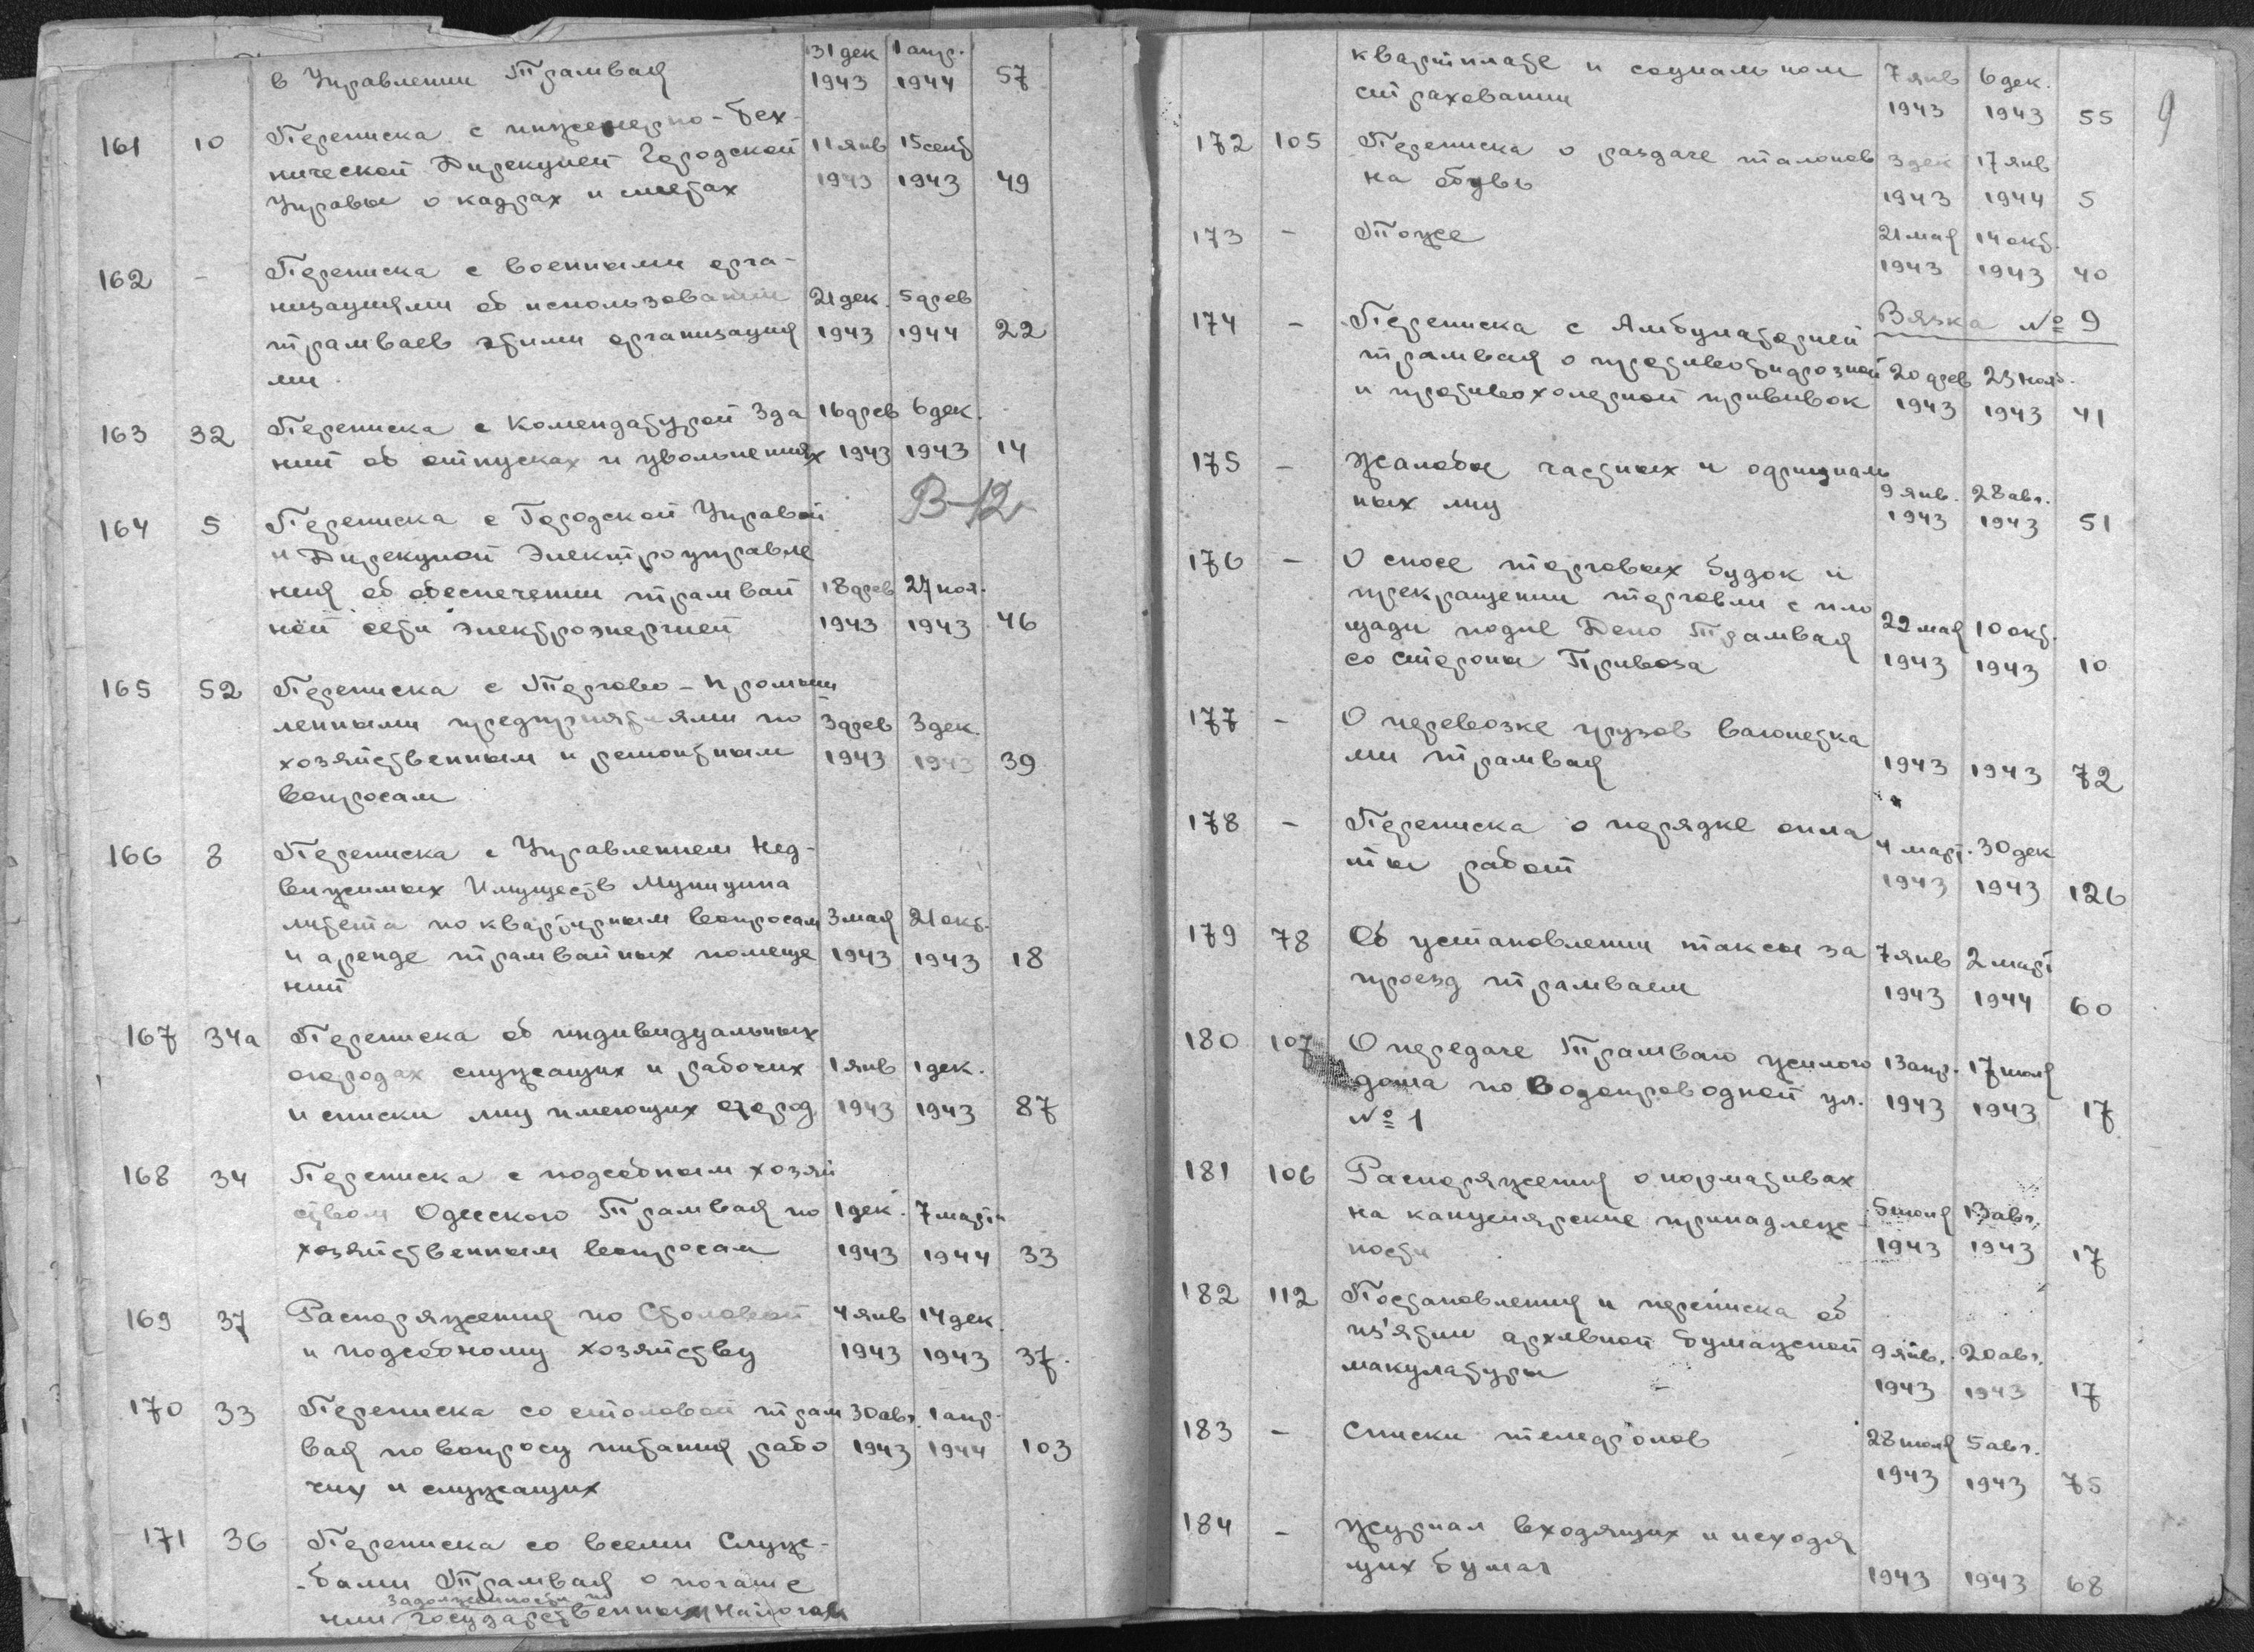 31 дек 1 апр.
в Управлении Трамвая 1943 1944 57
161 10 Переписка с инженерно-тех-
нической Дирекцией Городской 11 янв 15 сент
Управы о кадрах и сметах 1943 1943 49
162 - Переписка с военными орга-
низациями об использовании 21 дек. 5 фев
трамваев этими организация 1943 1944 22
ми.
163 32 Переписка с Комендатурой Зда 16 фев 6 дек.
ний об отпусках и увольнениях 1943 1943 14
164 5 Переписка с Городской Управой В-12
и Дирекцией Электроуправле
ния об обеспечении трамвай 18 фев 27 ноя.
ной сети электроэнергией 1943 1943 46
165 52 Переписка с Торгово-промыш
ленными предприятиями по 3 фев 3 дек.
хозяйственным и ремонтным 1943 1943 39
вопросам
166 8 Переписка с Управлением Нед-
вижимых Имуществ Муниципа
литета по квартирным вопросам 3 мая 21 окт.
и аренде трамвайных помеще 1943 1943 18
ний
167 34а Переписка об индивидуальных
огородах служащих и рабочих 1 янв 1 дек.
и списки лиц имеющих огород 1943 1943 87
168 34 Переписка с подсобным хозяй
ством Одесского Трамвая по 1 дек. 7 март
хозяйственным вопросам 1943 1944 33
169 37 Распоряжения по Столовой 4 янв 14 дек.
и подсобному хозяйству 1943 1943 37.
170 33 Переписка со столовой трам 30 авг. 1 апр.
вая по вопросу питания рабо 1943 1944 103
чих и служащих
171 36 Переписка со всеми Служ-
бами Трамвая о погаше
задолженности по
нии государственным налогам
9
квартплате и социальном 7 янв 6 дек.
страховании 1943 1943 55
172 105 Переписка о раздаче талонов 3 дек 17 янв
на обувь 1943 1944 5
173 - Тоже 21 мая 14 окт.
1943 1943 40
174 - Переписка с Амбулаторией Вязка № 9
трамвая о противотифозной 20 фев 25 нояб.
и противохолерной прививок 1943 1943 41
175 - Жалобы частных и официаль
ных лиц 9 янв. 28 авг.
1943 1943 51
176 - О сносе торговых будок и
прекращении торговли с пло
щади подле Депо Трамвая 22 мая 10 окт.
со стороны Привоза 1943 1943 10
177 - О перевозке грузов вагонетка
ми трамвая 1943 1943 72
178 - Переписка о порядке опла
ты работ 4 март. 30 дек
1943 1943 126
179 78 Об установлении таксы за 7 янв 2 март
проезд трамваем 1943 1944 60
180 107 О передаче Трамваю жилого 13 апр. 17 июля
дома по Водопроводной ул. 1943 1943 17
№ 1
181 106 Распоряжения о нормативах
на канцелярские принадлеж- 5 июля 13 авг.
ности 1943 1943 17
182 112 Постановления и переписка об
из'ятии архивной бумажной 9 янв. 20 авг.
макулатуры 1943 1943 17
183 - Списки телефонов 28 июля 5 авг.
1943 1943 75
184 - Журнал входящих и исходя
щих бумаг 1943 1943 68